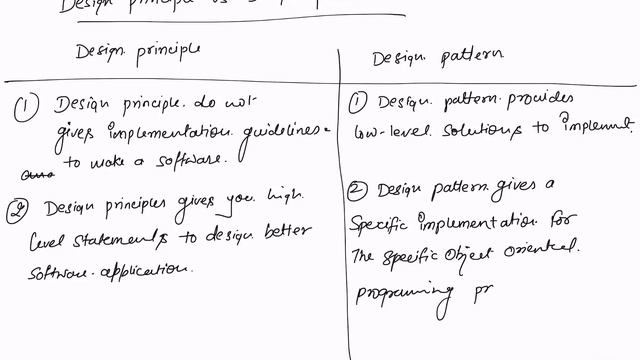 Design principle vs
Design principle
Design pattern
① Design principle do not
gives implementation guidelines
to make a software.
② Design principles gives you high
level statements to design better
software application.
① Design pattern provides
low-level solutions to implement.
② Design pattern gives a
specific implementation for
The specific object oriented.
programing pr